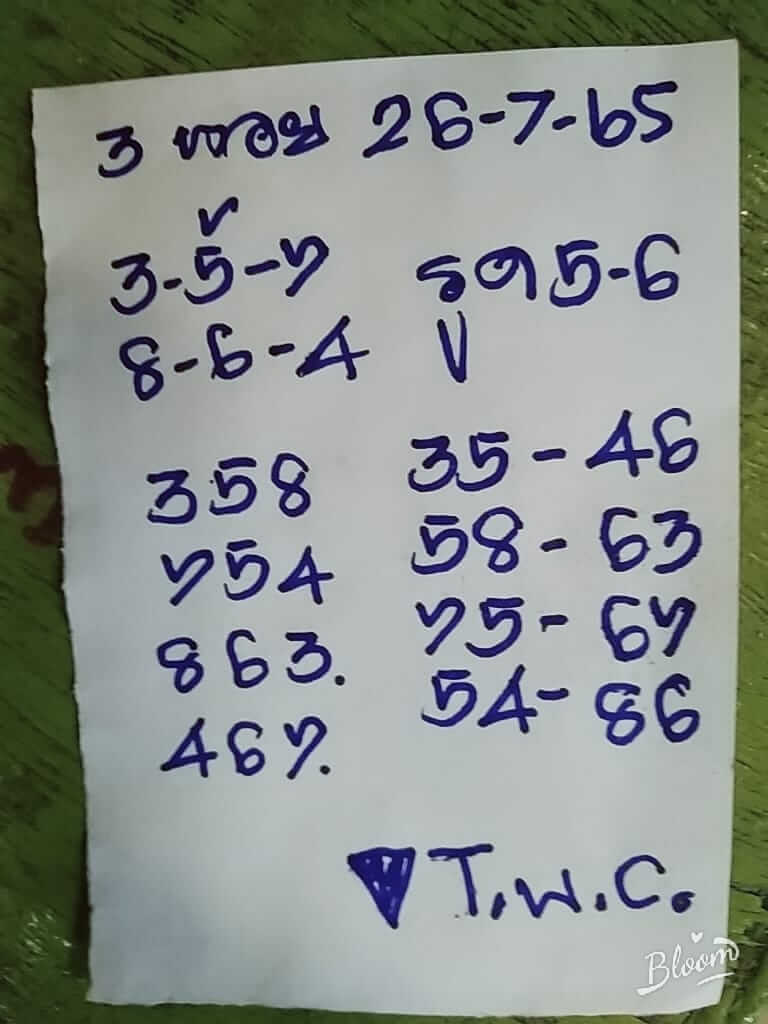 3 26-7-65
3-5-7
8-6-4
รูด 5-6
358
754
863.
467.
35-46
58-63
75-67
54-86
T.W.C.
Bloom